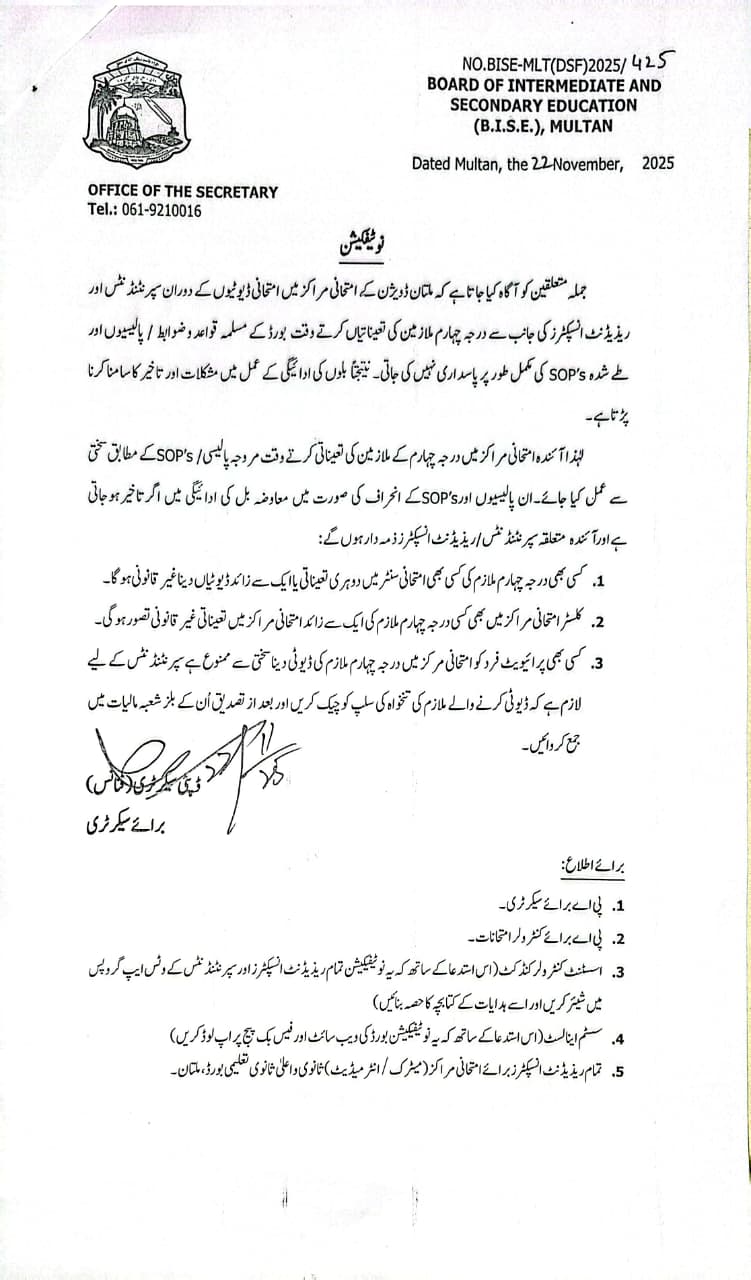 NO.BISE-MLT(DSF)2025/425
BOARD OF INTERMEDIATE AND
SECONDARY EDUCATION
(B.I.S.E.), MULTAN
Dated Multan, the 22 November, 2025
OFFICE OF THE SECRETARY
Tel.: 061-9210016
نوٹیفکیشن
جملہ متعلقین کو آگاہ کیا جاتا ہے کہ ملتان ڈویژن کے امتحانی مراکز میں امتحانی ڈیوٹیوں کے دوران سپرنٹنڈنٹس اور
ریذیڈنٹ انسپکٹرز کی جانب سے درجہ چہارم ملازمین کی تعیناتیاں کرتے وقت بورڈ کے مسلمہ قواعد و ضوابط / پالیسیوں اور
طے شدہ SOP's کی مکمل طور پر پاسداری نہیں کی جاتی۔ نتیجتاً بلوں کی ادائیگی کے عمل میں مشکلات اور تاخیر کا سامنا کرنا
پڑتا ہے۔
لہٰذا آئندہ امتحانی مراکز میں درجہ چہارم کے ملازمین کی تعیناتی کرتے وقت مروجہ پالیسی/ SOP's کے مطابق سختی
سے عمل کیا جائے۔ ان پالیسیوں اور SOP's کے انحراف کی صورت میں معاوضہ بل کی ادائیگی میں اگر تاخیر ہو جاتی
ہے اور آئندہ متعلقہ سپرنٹنڈنٹس/ریذیڈنٹ انسپکٹرز ذمہ دار ہوں گے:
1. کسی بھی درجہ چہارم ملازم کی کسی بھی امتحانی سنٹر میں دوہری تعیناتی یا ایک سے زائد ڈیوٹیاں دینا غیر قانونی ہو گا۔
2. کلسٹر امتحانی مراکز میں بھی کسی درجہ چہارم ملازم کی ایک سے زائد امتحانی مراکز میں تعیناتی غیر قانونی تصور ہو گی۔
3. کسی بھی پرائیویٹ فرد کو امتحانی مرکز میں درجہ چہارم ملازم کی ڈیوٹی دینا سختی سے ممنوع ہے سپرنٹنڈنٹس کے لیے
لازم ہے کہ ڈیوٹی کرنے والے ملازم کی تنخواہ کی سلپ کو چیک کریں اور بعد از تصدیق اُن کے بلز شعبہ مالیات میں
جمع کروائیں۔
22/11/25
ڈپٹی سیکرٹری (فنانس)
برائے سیکرٹری
برائے اطلاع:
1. پی اے برائے سیکرٹری۔
2. پی اے برائے کنٹرولر امتحانات۔
3. اسسٹنٹ کنٹرولر کنڈکٹ (اس استدعا کے ساتھ کہ یہ نوٹیفکیشن تمام ریذیڈنٹ انسپکٹرز اور سپرنٹنڈنٹس کے وٹس ایپ گروپس
میں شیئر کریں اور اسے ہدایات کے کتابچہ کا حصہ بنائیں)
4. سسٹم اینالسٹ (اس استدعا کے ساتھ کہ یہ نوٹیفکیشن بورڈ کی ویب سائٹ اور فیس بک پیج پر اپ لوڈ کریں)
5. تمام ریذیڈنٹ انسپکٹرز برائے امتحانی مراکز (میٹرک / انٹرمیڈیٹ) ثانوی و اعلیٰ ثانوی تعلیمی بورڈ، ملتان۔